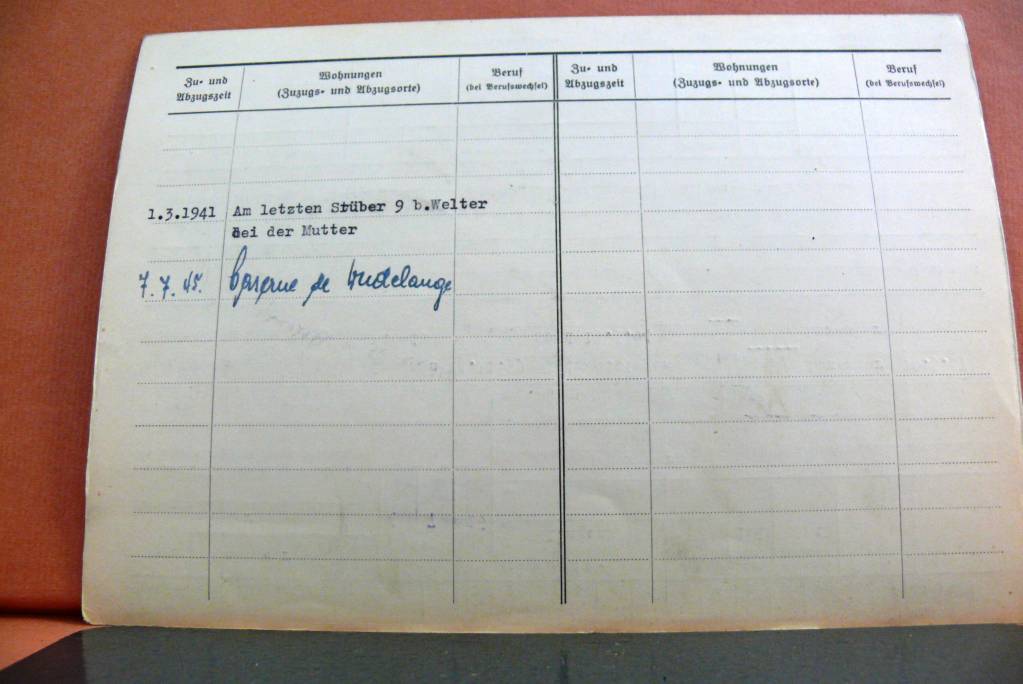 Zu- und
Abzugszeit
Wohnungen
(Zuzugs- und Abzugsorte)
Beruf
(bei Berufswechsel)
Zu- und
Abzugszeit
Wohnungen
(Zuzugs- und Abzugsorte)
Beruf
(bei Berufswechsel)
1.3.1941 Am letzten Stüber 9 b.Welter
bei der Mutter
7.7.45. Caserne de Dudelange